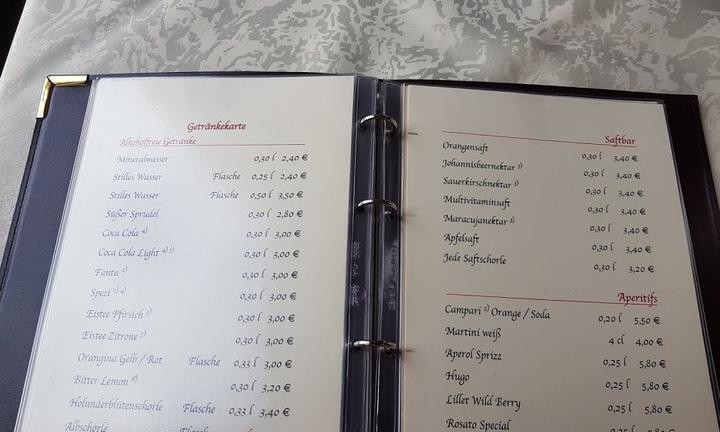 Getränkekarte
Alkoholfreie Getränke
Mineralwasser 0,30 l 2,40 €
Stilles Wasser Flasche 0,25 l 2,40 €
Stilles Wasser Flasche 0,50 l 3,50 €
Süßer Sprudel 0,30 l 2,80 €
Coca Cola 4) 0,30 l 3,00 €
Coca Cola Light 4) 3) 0,30 l 3,00 €
Fanta 2) 0,30 l 3,00 €
Spezi 2) 4) 0,30 l 3,00 €
Eistee Pfirsich 3) 0,30 l 3,00 €
Eistee Zitrone 3) 0,30 l 3,00 €
Orangina Gelb / Rot Flasche 0,33 l 3,00 €
Bitter Lemon 6) 0,30 l 3,20 €
Holunderblütenschorle Flasche 0,33 l 3,40 €
Albschorle Flasche
Saftbar
Orangensaft 0,30 l 3,40 €
Johannisbeernektar 3) 0,30 l 3,40 €
Sauerkirschnektar 3) 0,30 l 3,40 €
Multivitaminsaft 0,30 l 3,40 €
Maracujanektar 3) 0,30 l 3,40 €
Apfelsaft 0,30 l 3,40 €
Jede Saftschorle 0,30 l 3,20 €
Aperitifs
Campari 2) Orange / Soda 0,20 l 5,50 €
Martini weiß 4 cl 4,00 €
Aperol Sprizz 0,25 l 5,80 €
Hugo 0,25 l 5,80 €
Lillet Wild Berry 0,25 l 5,80 €
Rosato Special 5,80 €